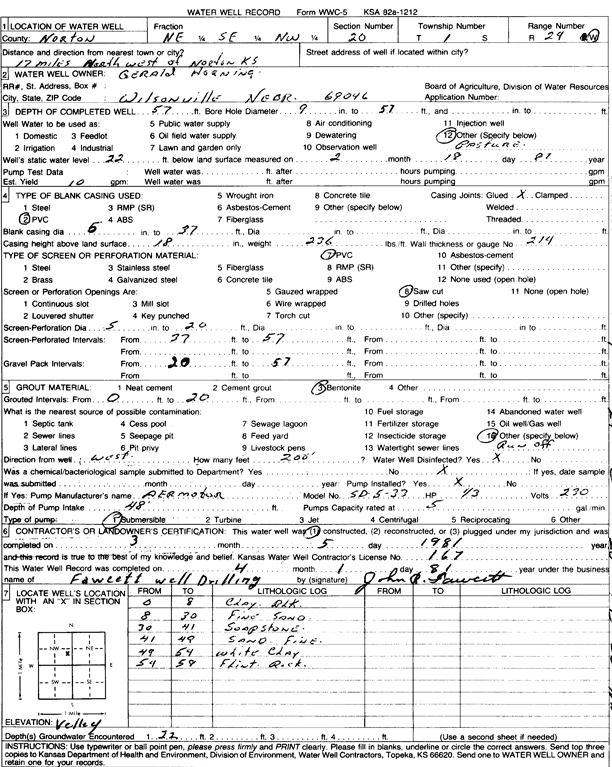 WATER WELL RECORD Form WWC-5 KSA 82a-1212
1 LOCATION OF WATER WELL Fraction Section Number Township Number Range Number
County: Norton NE ¼ SE ¼ NW ¼ 20 T 1 S R 24 W
Distance and direction from nearest town or city? Street address of well if located within city?
17 miles North west of Norton KS
2 WATER WELL OWNER: Gerald Horning
RR#, St. Address, Box # : Board of Agriculture, Division of Water Resources
City, State, ZIP Code : Wilsonville Nebr. 69046 Application Number:
3 DEPTH OF COMPLETED WELL 57 ft. Bore Hole Diameter 9 in. to 57 ft., and in. to ft.
Well Water to be used as: 5 Public water supply 8 Air conditioning 11 Injection well
1 Domestic 3 Feedlot 6 Oil field water supply 9 Dewatering 12 Other (Specify below)
2 Irrigation 4 Industrial 7 Lawn and garden only 10 Observation well Pasture
Well's static water level 22 ft. below land surface measured on 2 month 18 day 81 year
Pump Test Data Well water was ft. after hours pumping gpm
Est. Yield 10 gpm: Well water was ft. after hours pumping gpm
4 TYPE OF BLANK CASING USED: 5 Wrought iron 8 Concrete tile Casing Joints: Glued X Clamped
1 Steel 3 RMP (SR) 6 Asbestos-Cement 9 Other (specify below) Welded
2 PVC 4 ABS 7 Fiberglass Threaded
Blank casing dia 5 in. to 37 ft., Dia in. to ft., Dia in. to ft.
Casing height above land surface 18 in., weight 236 lbs./ft. Wall thickness or gauge No. 214
TYPE OF SCREEN OR PERFORATION MATERIAL: 7 PVC 10 Asbestos-cement
1 Steel 3 Stainless steel 5 Fiberglass 8 RMP (SR) 11 Other (specify)
2 Brass 4 Galvanized steel 6 Concrete tile 9 ABS 12 None used (open hole)
Screen or Perforation Openings Are: 5 Gauzed wrapped 8 Saw cut 11 None (open hole)
1 Continuous slot 3 Mill slot 6 Wire wrapped 9 Drilled holes
2 Louvered shutter 4 Key punched 7 Torch cut 10 Other (specify)
Screen-Perforation Dia 5 in. to 20 ft., Dia in. to ft., Dia in. to ft.
Screen-Perforated Intervals: From 37 ft. to 57 ft., From ft. to ft.
From ft. to ft., From ft. to ft.
Gravel Pack Intervals: From 20 ft. to 57 ft., From ft. to ft.
From ft. to ft., From ft. to ft.
5 GROUT MATERIAL: 1 Neat cement 2 Cement grout 3 Bentonite 4 Other
Grouted Intervals: From 0 ft. to 20 ft., From ft. to ft., From ft. to ft.
What is the nearest source of possible contamination: 10 Fuel storage 14 Abandoned water well
1 Septic tank 4 Cess pool 7 Sewage lagoon 11 Fertilizer storage 15 Oil well/Gas well
2 Sewer lines 5 Seepage pit 8 Feed yard 12 Insecticide storage 16 Other (specify below)
3 Lateral lines 6 Pit privy 9 Livestock pens 13 Watertight sewer lines Run off
Direction from well west How many feet 200' ? Water Well Disinfected? Yes X No
Was a chemical/bacteriological sample submitted to Department? Yes No X If yes, date sample
was submitted month day year: Pump Installed? Yes X No
If Yes: Pump Manufacturer's name Aermotor Model No. SD-5-33 HP 1/3 Volts 230
Depth of Pump Intake 48 ft. Pumps Capacity rated at 5 gal./min.
Type of pump: 1 Submersible 2 Turbine 3 Jet 4 Centrifugal 5 Reciprocating 6 Other
6 CONTRACTOR'S OR LANDOWNER'S CERTIFICATION: This water well was (1) constructed, (2) reconstructed, or (3) plugged under my jurisdiction and was
completed on 3 month 5 day 1981 year
and this record is true to the best of my knowledge and belief. Kansas Water Well Contractor's License No. 167
This Water Well Record was completed on 4 month 1 day 81 year under the business
name of Fawcett Well Drilling by (signature) John R. Fawcett
7 LOCATE WELL'S LOCATION WITH AN "X" IN SECTION BOX:
FROM TO LITHOLOGIC LOG FROM TO LITHOLOGIC LOG
0 8 Clay. Drk.
8 30 Fine Sand.
30 41 Soapstone.
41 49 Sand. Fine.
49 54 White Clay
54 58 Flint Rock.
N
NW NE
W X E
SW SE
S
1 Mile
1 Mile
ELEVATION: Valley
Depth(s) Groundwater Encountered 1. 22 ft. 2. ft. 3. ft. 4. ft. (Use a second sheet if needed)
INSTRUCTIONS: Use typewriter or ball point pen, please press firmly and PRINT clearly. Please fill in blanks, underline or circle the correct answers. Send top three
copies to Kansas Department of Health and Environment, Division of Environment, Water Well Contractors, Topeka, KS 66620. Send one to WATER WELL OWNER and
retain one for your records.